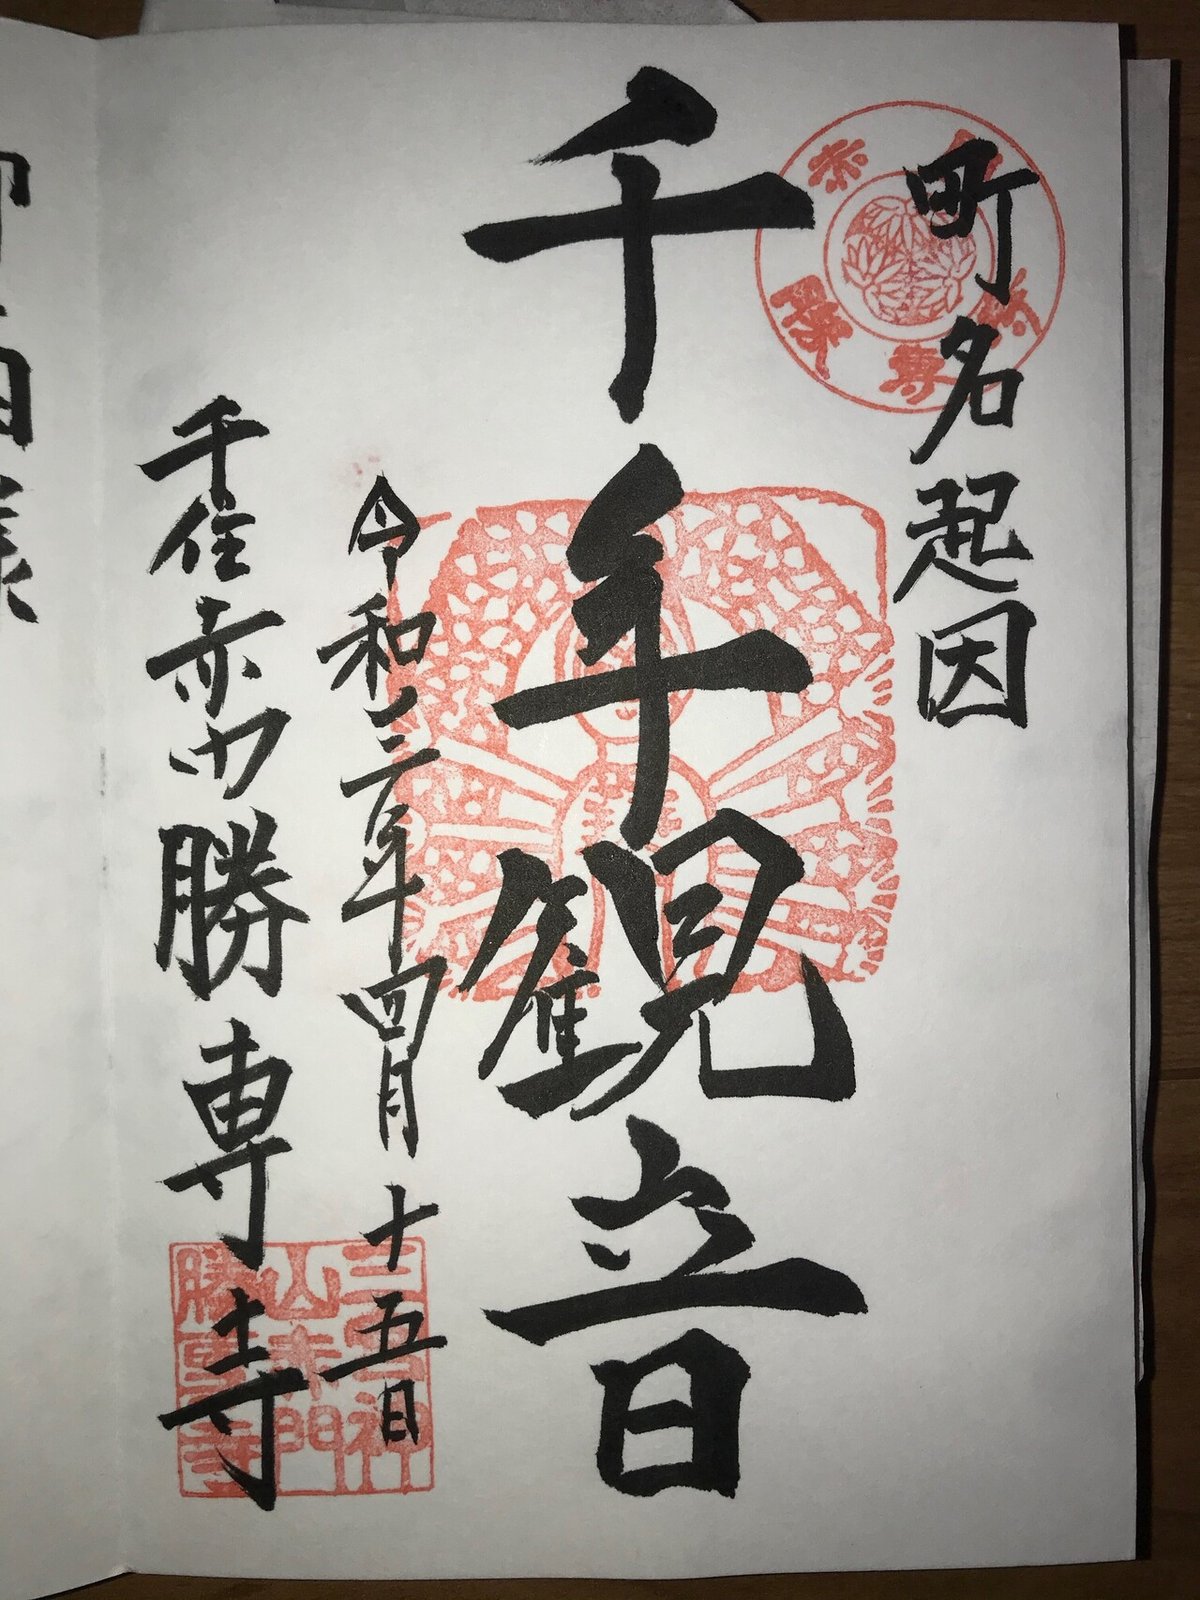 町名起因
千手観音
令和三年四月十五日
千住赤門勝専寺
三宮神
山赤門
勝専寺